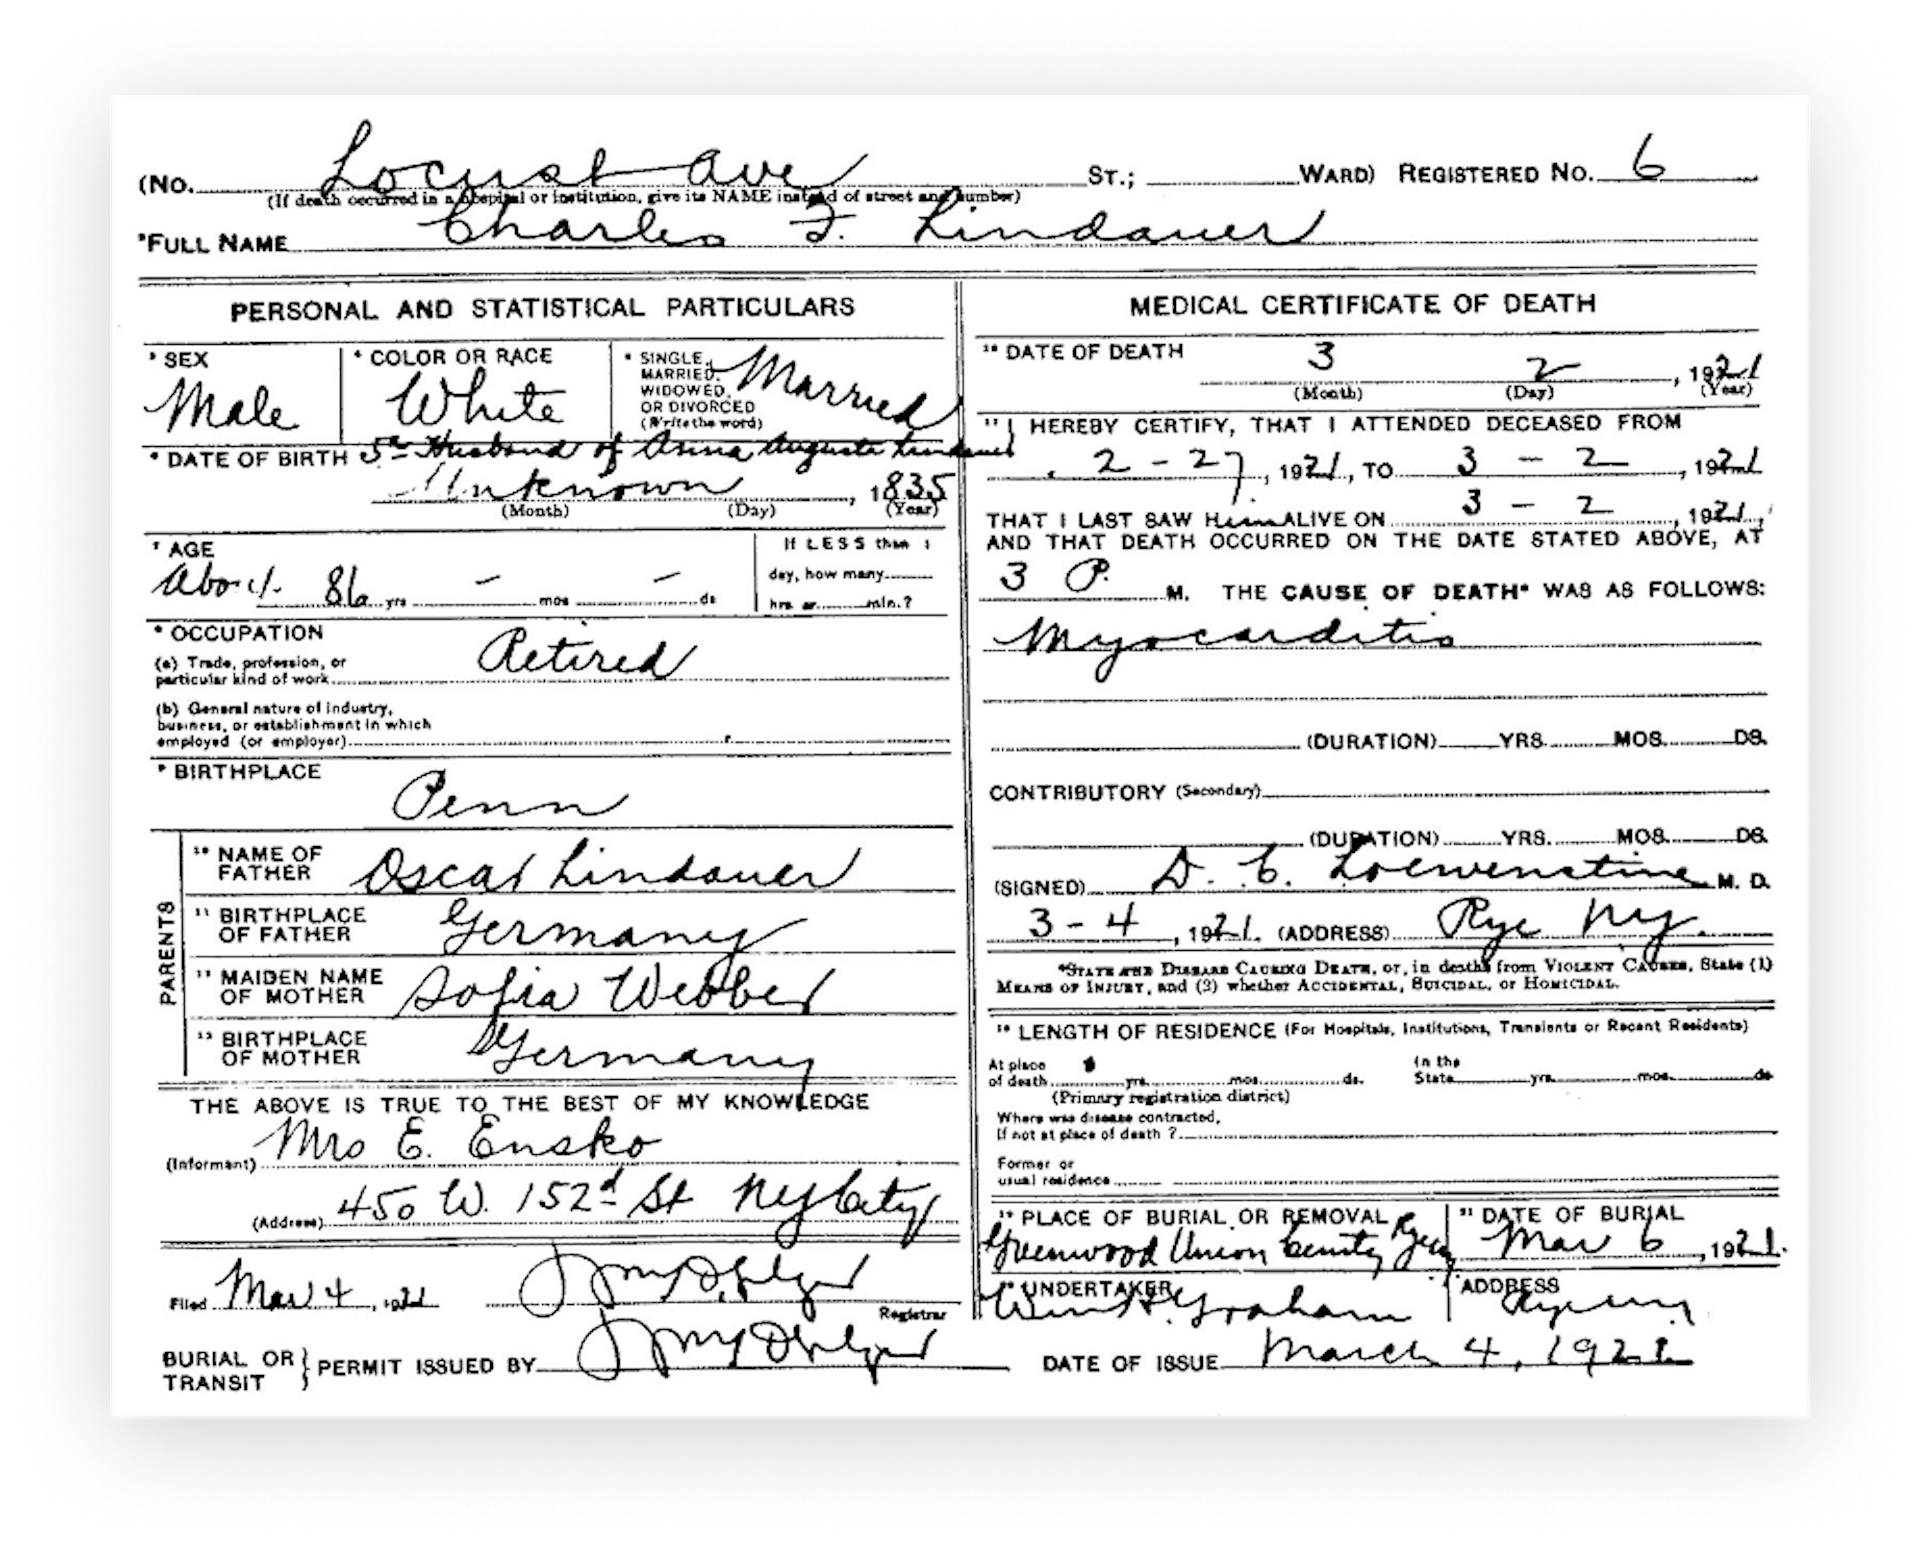 (No. Locust Ave St.; Ward) Registered No. 6
(If death occurred in a hospital or institution, give its NAME instead of street and number)
² FULL NAME Charles F. Lindauer
PERSONAL AND STATISTICAL PARTICULARS
³ SEX
Male
⁴ COLOR OR RACE
White
⁵ SINGLE,
MARRIED,
WIDOWED,
OR DIVORCED
(Write the word)
Married
⁶ DATE OF BIRTH 5th Husband of Anna Augusta Lindauer
Unknown, 1835
(Month) (Day) (Year)
⁷ AGE
About 86 yrs - mos - ds
If LESS than 1
day, how many
hrs or min.?
⁸ OCCUPATION
(a) Trade, profession, or
particular kind of work Retired
(b) General nature of industry,
business, or establishment in which
employed (or employer)
⁹ BIRTHPLACE
Penn
PARENTS
¹⁰ NAME OF
FATHER Oscar Lindauer
¹¹ BIRTHPLACE
OF FATHER Germany
¹² MAIDEN NAME
OF MOTHER Sofia Webber
¹³ BIRTHPLACE
OF MOTHER Germany
THE ABOVE IS TRUE TO THE BEST OF MY KNOWLEDGE
(Informant) Mrs E. Ensko
(Address) 450 W. 152d St NY City
Filed Mar 4, 1921
Registrar
MEDICAL CERTIFICATE OF DEATH
¹⁶ DATE OF DEATH 3 2, 1921
(Month) (Day) (Year)
¹⁷ I HEREBY CERTIFY, THAT I ATTENDED DECEASED FROM
2 - 27, 1921, TO 3 - 2, 1921
THAT I LAST SAW Him ALIVE ON 3 - 2, 1921,
AND THAT DEATH OCCURRED ON THE DATE STATED ABOVE, AT
3 P. M. THE CAUSE OF DEATH* WAS AS FOLLOWS:
Myocarditis
(DURATION) YRS. MOS. DS.
CONTRIBUTORY (Secondary)
(DURATION) YRS. MOS. DS.
(SIGNED) D. C. Loewenstine M. D.
3 - 4, 1921. (ADDRESS) Rye NY.
*State the Disease Causing Death, or, in deaths from Violent Causes, State (1)
Means of Injury, and (2) whether Accidental, Suicidal, or Homicidal.
¹⁸ LENGTH OF RESIDENCE (For Hospitals, Institutions, Transients or Recent Residents)
At place
of death yrs. mos. ds.
In the
State yrs. mos. ds
(Primary registration district)
Where was disease contracted,
If not at place of death ?
Former or
usual residence
¹⁹ PLACE OF BURIAL OR REMOVAL
Greenwood Union
²¹ DATE OF BURIAL
Mar 6, 1921.
²⁰ UNDERTAKER
Wm H. Graham
ADDRESS
Rye NY
BURIAL OR
TRANSIT } PERMIT ISSUED BY
DATE OF ISSUE March 4, 1921